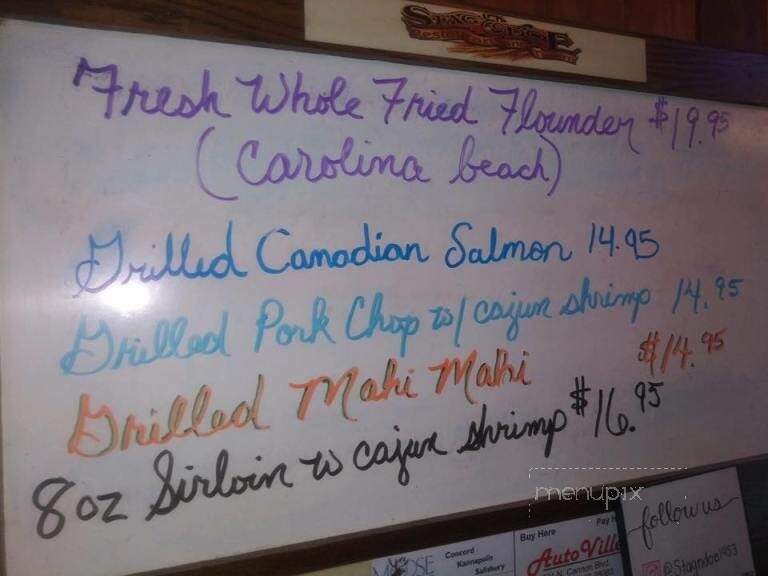 Fresh Whole Fried Flounder $19.95
(Carolina beach)
Grilled Canadian Salmon 14.95
Grilled Pork Chop w/ cajun shrimp 14.95
Grilled Mahi Mahi $14.95
8oz Sirloin w cajun shrimp $16.95
menupix
follow us
@Stagndoe1953
Buy Here
Auto Ville
Concord
Kannapolis
Salisbury